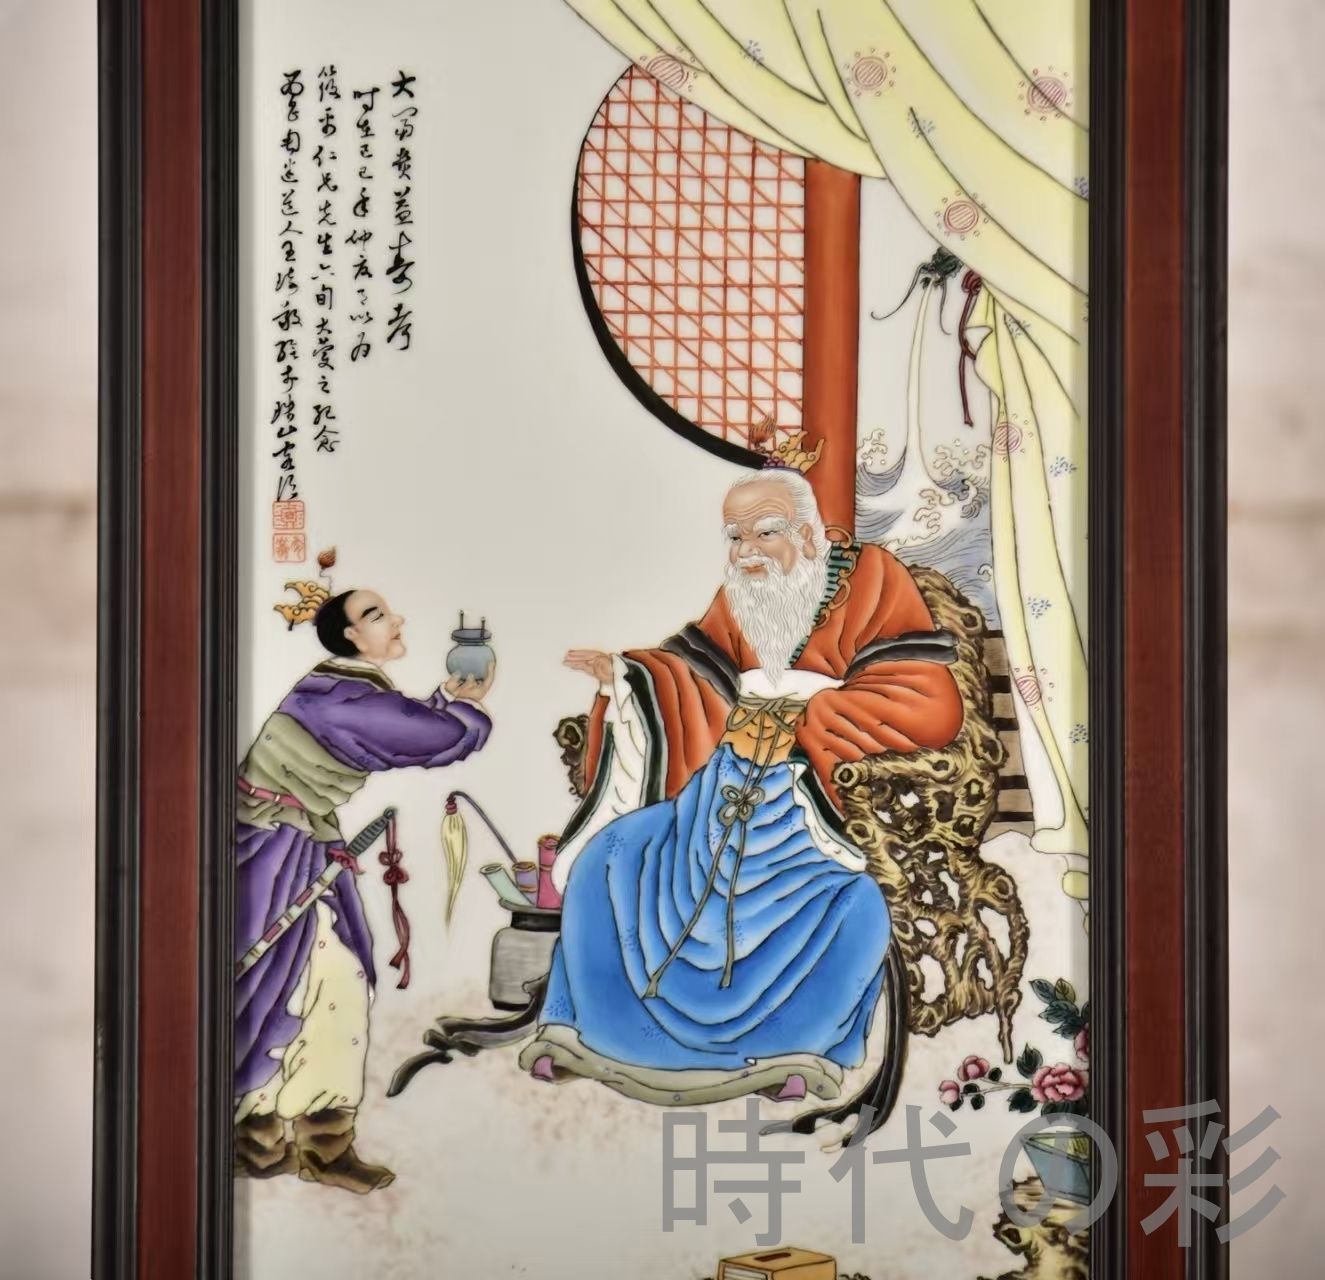 大富贵益寿考
时在己巳年仲夏月以为
筱舟仁兄先生六旬大庆之纪念
西昌陶迷道人王琦敬绘于珠山客次
時代の彩